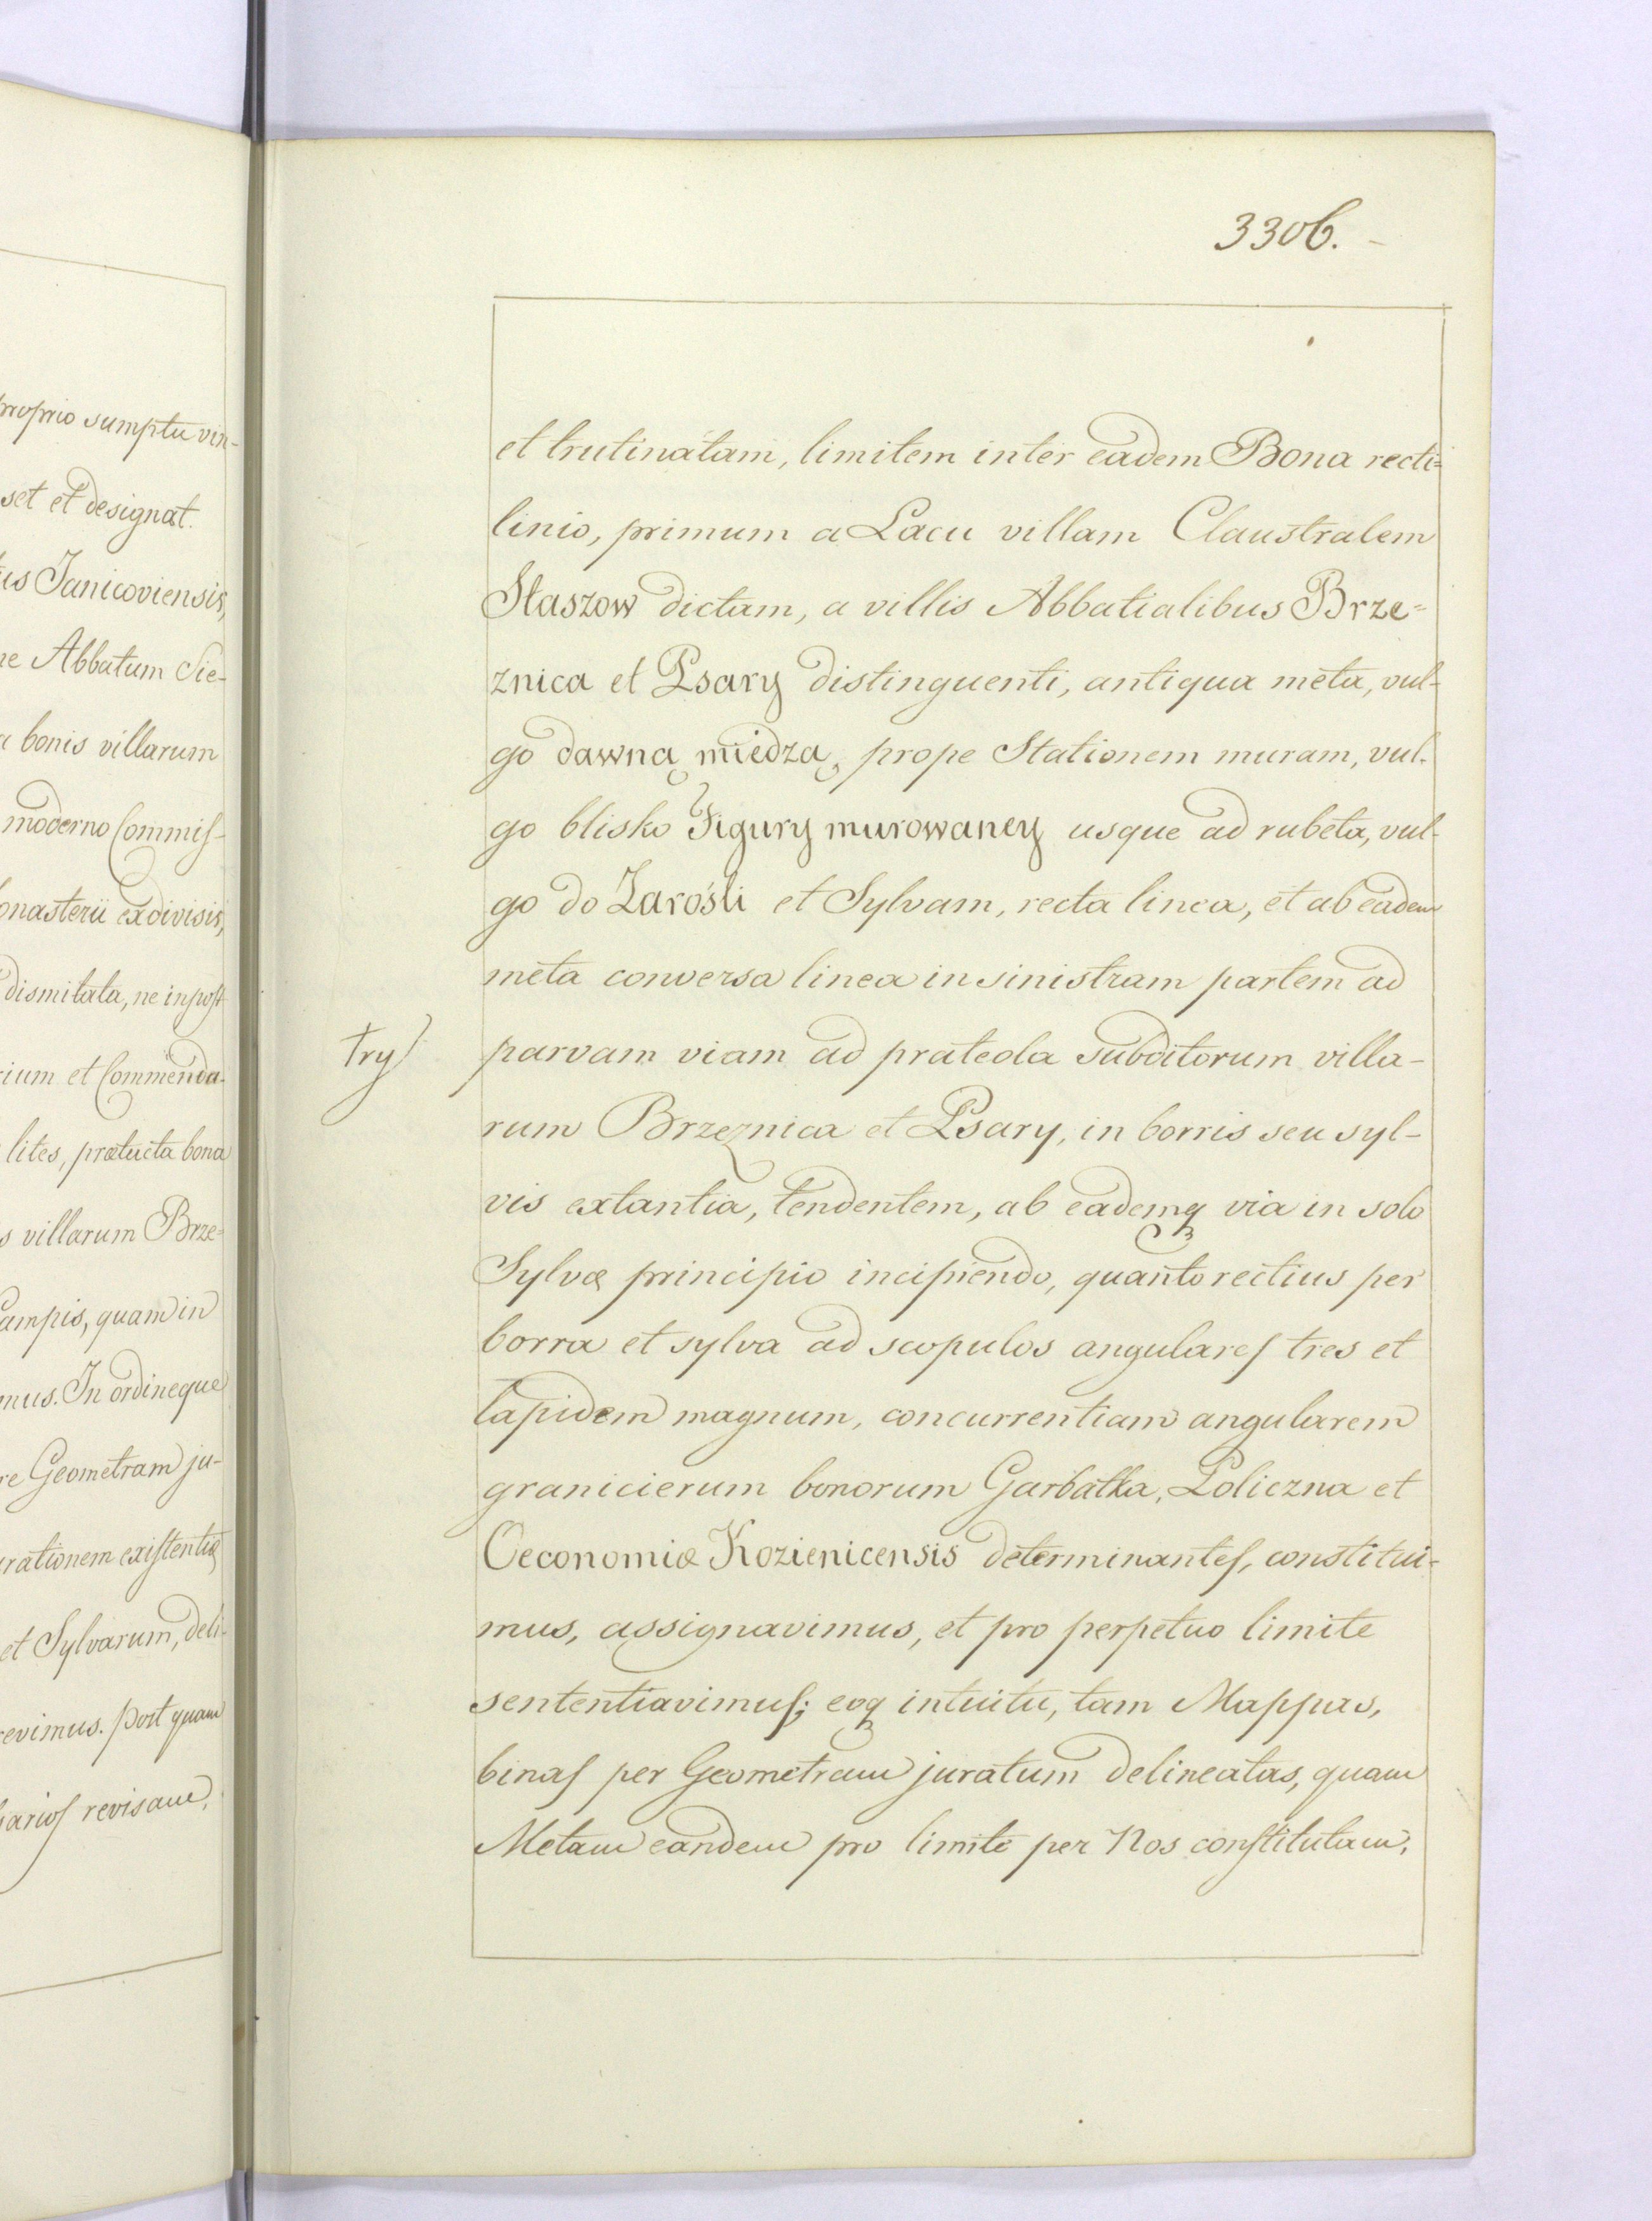 proprio sumptu vin-
set et designat.
us Janicoviensis,
ne Abbatum Sie-
a bonis villarum
moderno Commis-
onasterii ex divisis,
dismitata, ne in post
rium et Commenda-
lites, prætacta bona
s villarum Brze=
Campis, quam in
mus. In ordineque
re Geometram ju-
rationem existentiæ
et Sylvarum, deli-
revimus. post quam
arios revisam,
3306.
et trutinatam, limitem inter eadem Bona recti=
linio, primum a Lacu villam Claustralem
Staszow dictam, a villis Abbatialibus Brze=
znica et Psary distinguenti, antiqua meta, vul-
go dawną miedzą, prope Stationem muram, vul-
go blisko Figury murowaney usque ad rubeta, vul-
go do Zarośli et Sylvam, recta linea, et ab eadem
meta conversa linea in sinistram partem ad
Try
parvam viam ad prateola subditorum villa-
rum Brzeznica et Psary, in borris seu syl-
vis extantia, tendentem, ab eademq via in solo
Sylvæ principio incipiendo, quanto rectius per
borra et sylva ad scopulos angulares tres et
lapidem magnum, concurrentiam angularem
granicierum bonorum Garbatka, Policzna et
Oeconomiæ Kozienicensis determinantes, constitui-
mus, assignavimus, et pro perpetuo limite
sententiavimus; eoq intuitu, tam Mappas,
binas per Geometram juratum delineatas, quam
Metam eandem pro limite per Nos constitutam,